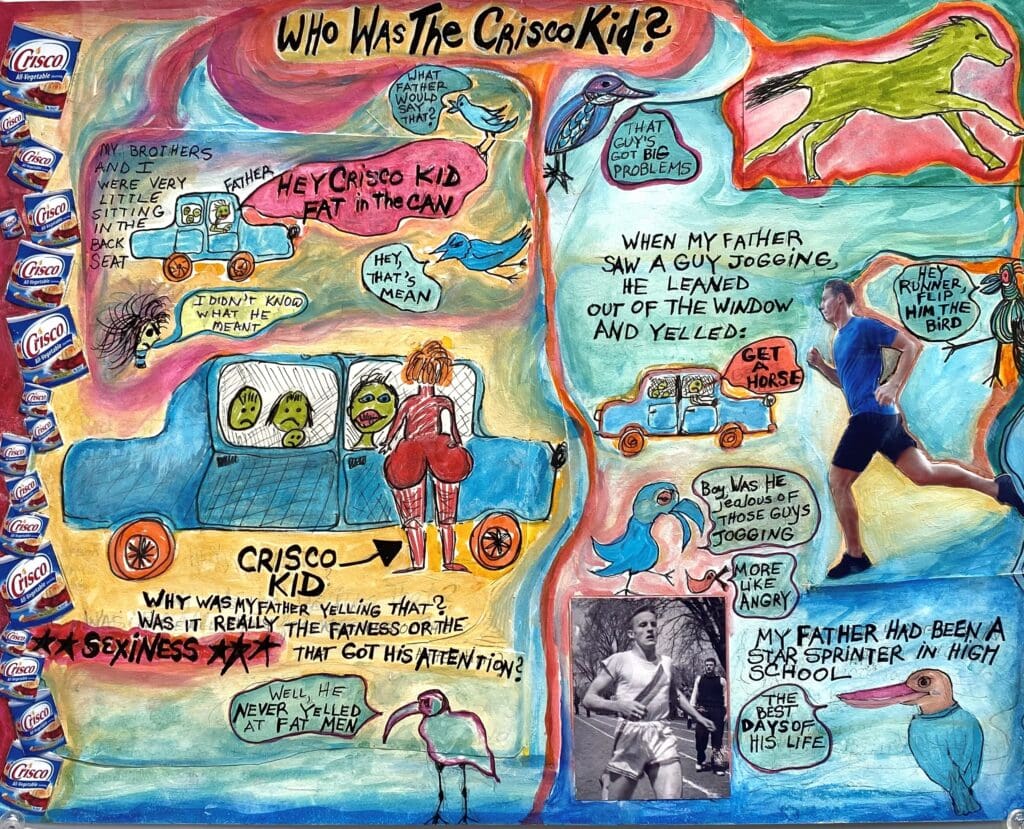 WHO WAS THE CRISCO KID?
Crisco
All-Vegetable
Crisco
Crisco
Crisco
Crisco
Crisco
All-Vegetable
Crisco
Crisco
Crisco
Crisco
Crisco
Crisco
Crisco
Crisco
Crisco
Crisco
WHAT
FATHER
WOULD
SAY
THAT?
MY BROTHERS
AND I
WERE VERY
LITTLE
SITTING
IN THE
BACK
SEAT
FATHER
HEY CRISCO KID
FAT in the CAN
HEY,
THAT'S
MEAN
I DIDN'T KNOW
WHAT HE
MEANT
CRISCO
KID
WHY WAS MY FATHER YELLING THAT?
WAS IT REALLY THE FATNESS OR THE
★★ SEXINESS ★★★ THAT GOT HIS ATTENTION?
WELL, HE
NEVER YELLED
AT FAT MEN
THAT
GUY'S
GOT BIG
PROBLEMS
WHEN MY FATHER
SAW A GUY JOGGING,
HE LEANED
OUT OF THE WINDOW
AND YELLED:
HEY
RUNNER,
FLIP
HIM THE
BIRD
GET
A
HORSE
Boy, WAS HE
jealous OF
THOSE GUYS
JOGGING
MORE
LIKE
ANGRY
MY FATHER HAD BEEN A
STAR SPRINTER IN HIGH
SCHOOL
THE
BEST
DAYS OF
HIS LIFE